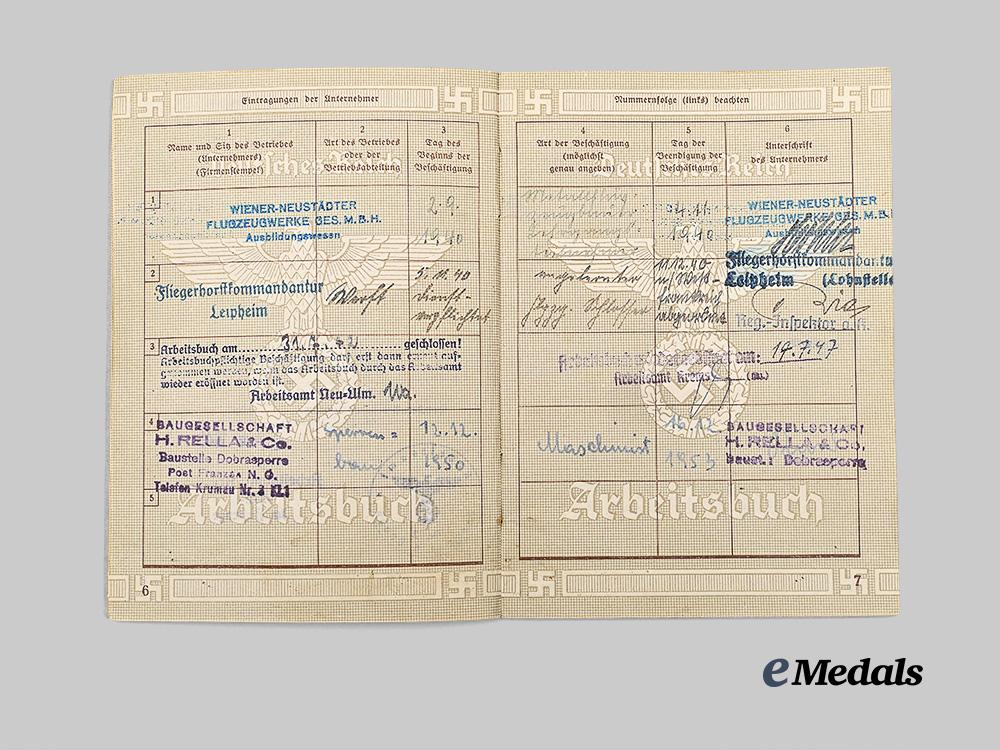 Eintragungen der Unternehmer
1
Name und Sitz des Betriebes
(Unternehmers)
(Firmenstempel)
2
Art des Betriebes
oder der
Betriebsabteilung
3
Tag des
Beginns der
Beschäftigung
Deutsches Reich
1
WIENER-NEUSTÄDTER
FLUGZEUGWERKE GES. M. B. H.
Ausbildungswesen
2.9.
1940
2
Fliegerhorstkommandantur
Leipheim
Werft
5. 11. 40
dienst-
verpflichtet
3
Arbeitsbuch am 31. 42 geschlossen!
Arbeitsbuchpflichtige Beschäftigung darf erst dann erneut auf-
genommen werden, wenn das Arbeitsbuch durch das Arbeitsamt
wieder eröffnet worden ist.
Arbeitsamt Neu-Ulm.
4
BAUGESELLSCHAFT
H. RELLA & Co.
Baustelle Dobrasperre
Post Franzen N. Ö.
Telefon Krumau Nr. 3 Kl.1
12.12.
1950
5
Arbeitsbuch
6
Nummernfolge (links) beachten
4
Art der Beschäftigung
(möglichst
genau angeben)
5
Tag der
Beendigung der
Beschäftigung
6
Unterschrift
des Unternehmers
Deutsches Reich
4.11.
1940
WIENER-NEUSTÄDTER
FLUGZEUGWERKE GES. M. B. H.
Ausbildungswesen
angelernter
Schlosser
11.12.40
Frankreich
Fliegerhorstkommandantur
Leipheim (Lohnstelle
Reg.-Inspektor a.K.
am: 19.7.47
Arbeitsamt Krems
Maschinist
16.12.
1953
BAUGESELLSCHAFT
H. RELLA & Co.
Baust.: Dobrasperre
Arbeitsbuch
7
eMedals